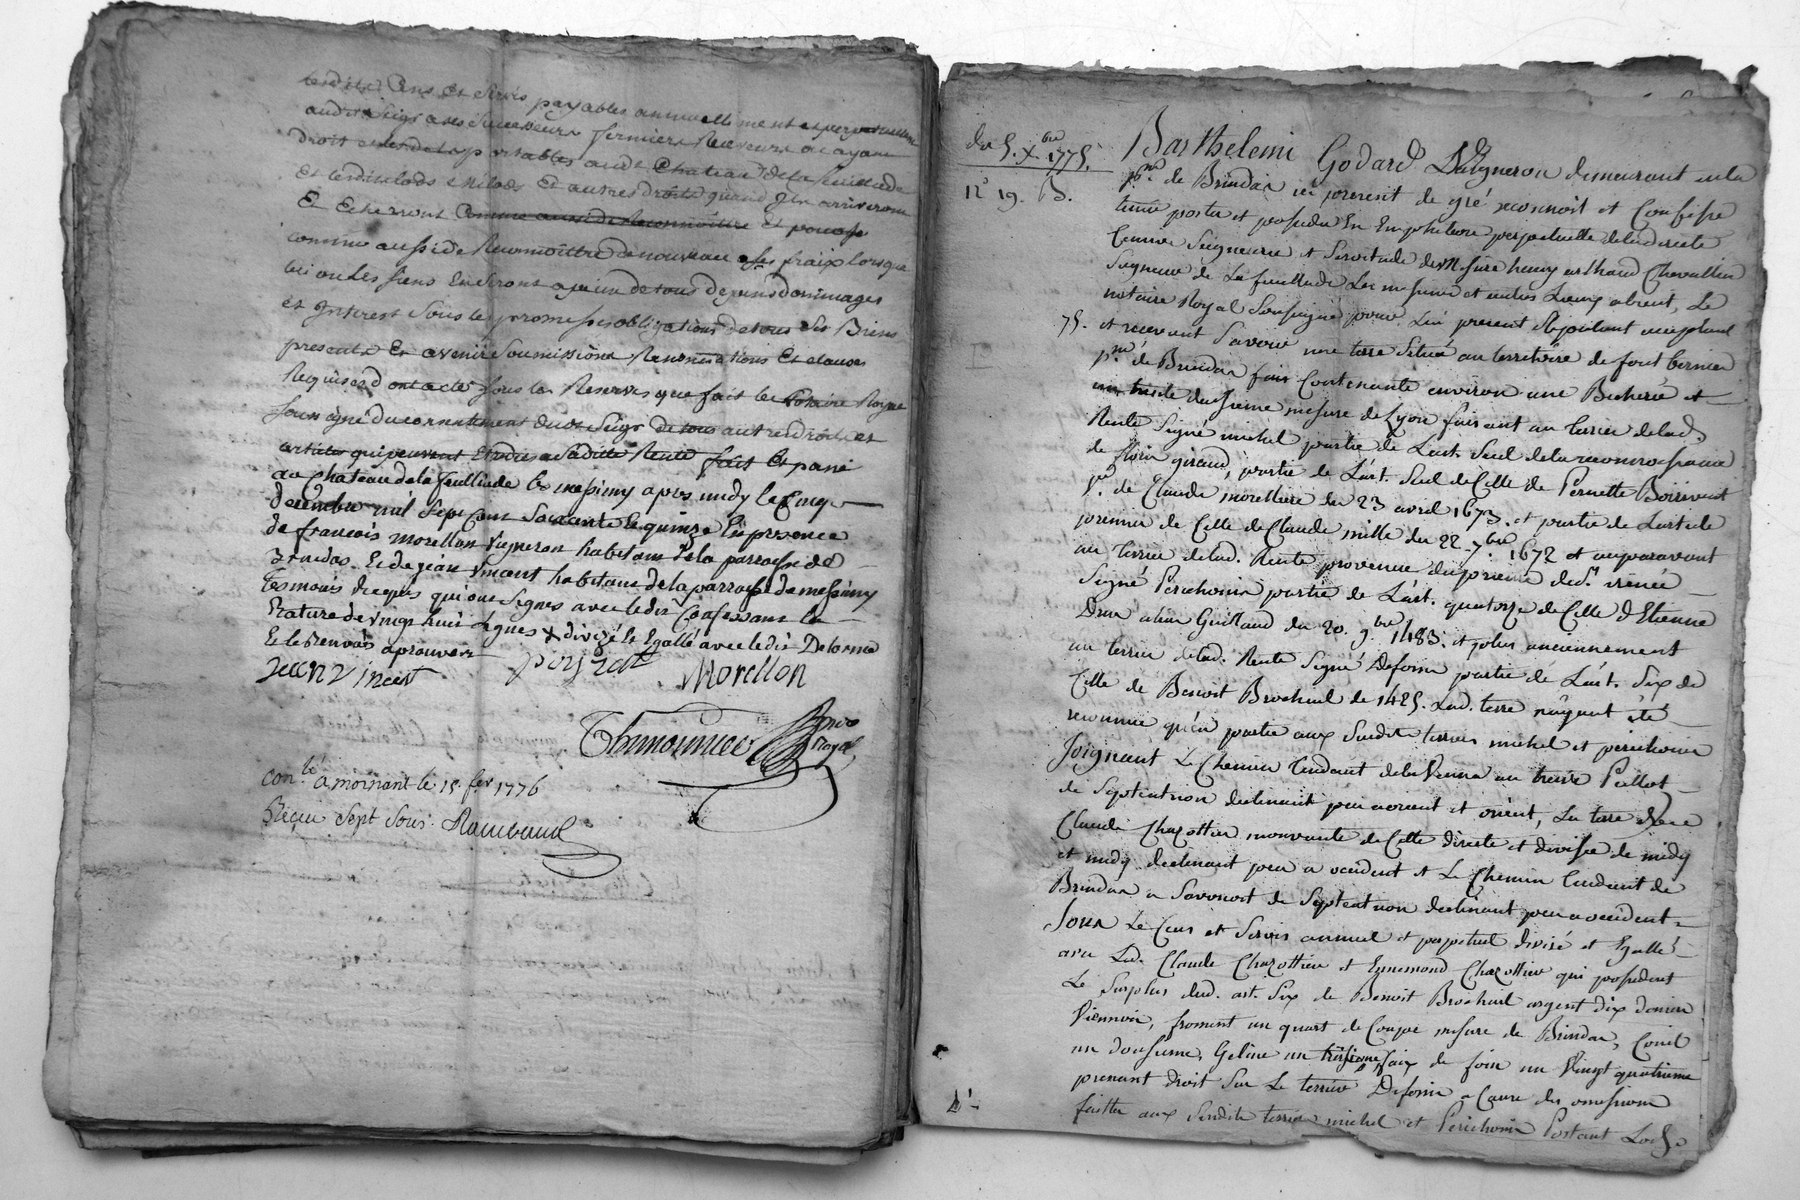 lesdits Cens et Servis payables annuellement et perpetuellement
audit Seigr a ses Successeurs fermiers Receveurs ou ayant
droit portables audt Chateau de la feuillade
et lesdits lods milods et autres droits quand Ils arriveront
Et Echerront comme aussi de Reconnoître et
comme aussi de Reconnoître de nouveau a ses fraix lorsque
lui ou les siens En seront a peine de tous depens dommages
et Interest sous les promesses obligations de tous ses Biens
presents Et avenir soumissions Renonciations Et clauses
Requises dont acte sous les Reserves que fait le Notaire Royal
soussigné du consentement dudt Seigr de tous autres droits et
qui peuvent Etre dus a Sadite Rente fait Et passé
au Chateau de la feuillade le messimy apres midy le Cinq
decembre mil Sept Cent Soixante Et quinze En presence
de françois morellon Vigneron habitant de la parroisse de
Brindas Et de jean Vincent habitant de la parroisse de messimy
temoins requis qui ont Signés avec le dit Confessant la
Nature de vingt huit Lignes x divizé Et Egallé avec ledit Delorme
Et le Renvois aprouvés
jean Vincent Morellon
Thimonnier Nore Royal
con.lé a mornant le 15 fer 1776
Reçu Sept Sous Rambaud
du 5. Xbre 1775.
n° 19. B.
75.
Barthelemi Godard Vigneron demeurant en la
psse de Brindas ici present de gré reconnoit et Confesse
tenir porter et posseder En Emphiteose perpetuelle de la directe
Censive Seigneurie et Servitude de Messire henry arthaud Chevallier
Seigneur de La feuillade Les messimy et autres Lieux absent, Le
notaire Royal Soussigné pour Lui present Stipulant acceptant
et recevant Savoir une terre Située au territoire de font bernier
psse de Brindas Contenante environ une Bicherée et
mesure de Lyon faisant au Terrier de lad.
Rente Signé michel partie de L'art. Seul de la reconnoissance
de giraud, partie de L'art. Seul de Celle de Pernette Boirivent
de Claude morelliere du 23 avril 1673. et partie de L'article
premier de Celle de Claude mille du 22 7bre 1672 et auparavant
au Terrier de lad. Rente provenue du prieuré de St. irenée
Signé Perichonis partie de L'art. quatorze de Celle d'Etienne
Drua alias Guillaud du 20. 9bre 1483. et plus anciennement
au terrier de lad. Rente Signé Defonis partie de L'art. Six de
Celle de Benoit Brochuil de 1425. Lad. terre n'ayant été
reconnue qu'en partie aux Susdits terriers michel et perichonis
Joignant Le Chemin Tendant de la Vanna au
de Septentrion declinant peu a orient et orient, La terre de
Claude Chazottier mouvante de Cette directe et divisée de midy
et midy declinant peu a occident et Le Chemin Tendant de
Brindas a Savonost de Septentrion declinant peu a occident
Sous Le Cens et Servis annuel et perpetuel divisé et Egallé
avec Led. Claude Chazottier et Ennemond Chazottier qui possedent
Le Surplus dud. art. Six de Benoit Brochuil argent dix deniers
Viennois, froment un quart de Coupe mesure de Brindas, Conil
un douzieme, Geline un troisieme, faix de foin un Vingt quatrieme
prenant droit Sur Le terrier Defonis a Cause des omissions
faittes aux Susdits terriers michel et Perichonis Portant Lods